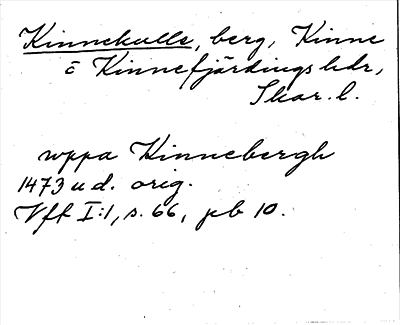 Kinnekulle, berg, Kinne
o Kinnefjärdings hdr,
Skar. l.
uppa Kinnebergh
1473 u d. orig.
Vff I:1, s. 66, pb 10.